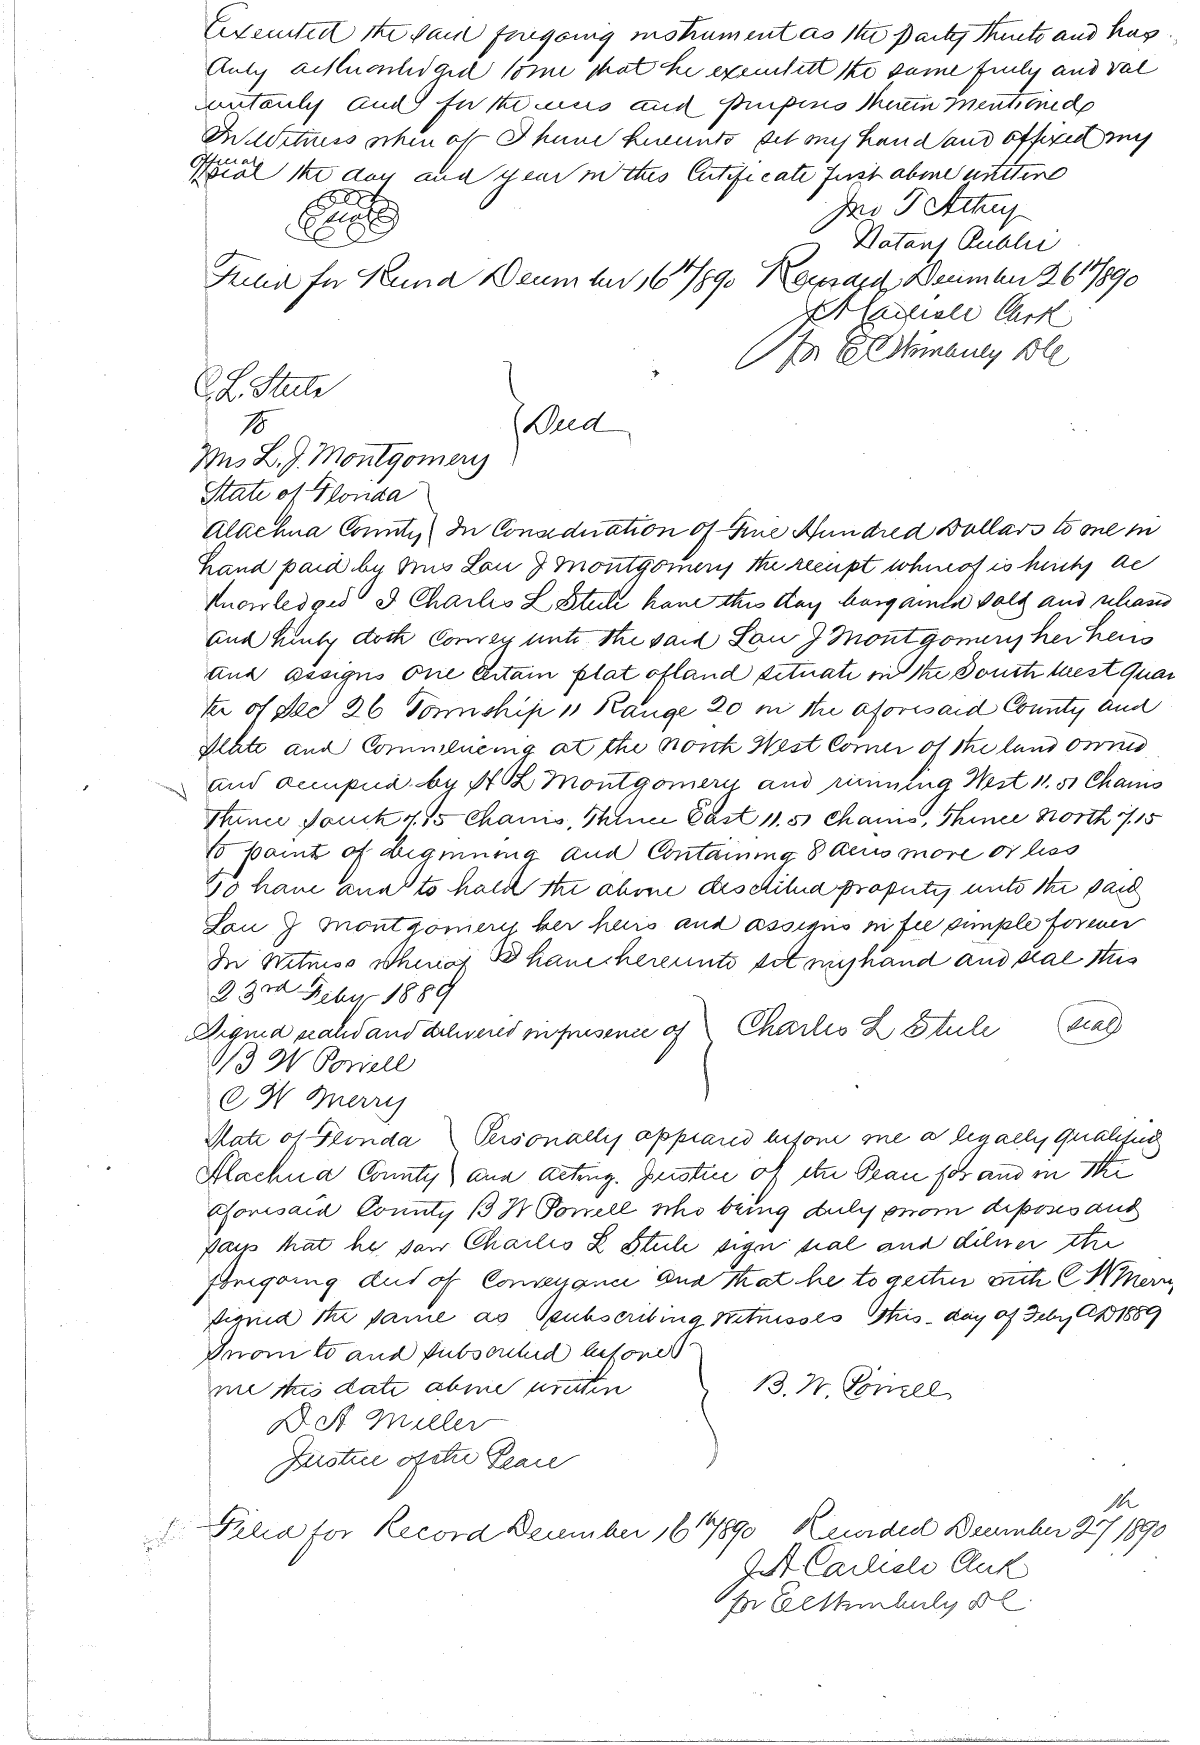 Executed the said foregoing instrument as the party thereto and has
duly acknowledged to me that he executed the same freely and vol
untarily and for the uses and purposes therein mentioned
In Witness where of I have hereunto set my hand and affixed my
official
seal the day and year in this Certificate first above written
Seal
Jno T Athey
Notary Public
Filed for Record December 16th 1890 Recorded December 26th 1890
J A Carlisle Clerk
for DC
C. L. Steele
To
Deed
Mrs L. J. Montgomery
State of Florida
Alachua County In Consideration of Five Hundred Dollars to me in
hand paid by Mrs Lou J Montgomery the receipt whereof is hereby ac
knowledged I Charles L Steele have this day bargained sold and released
and hereby doth Convey unto the said Lou J Montgomery her heirs
and assigns One certain plat of land situate in the South West Quar
ter of Sec 26 Township 11 Range 20 in the aforesaid County and
State and Commencing at the North West Corner of the land owned
and occupied by H L Montgomery and running West 11.51 Chains
Thence South 7.15 Chains, Thence East 11.51 Chains, Thence North 7.15
to point of beginning and Containing 8 Acres more or less
To have and to hold the above described property unto the said
Lou J Montgomery her heirs and assigns in fee simple forever
In Witness whereof I have hereunto set my hand and seal this
23rd Feby 1889
Signed sealed and delivered in presence of Charles L Steele seal
B W Powell
C W Merry
State of Florida Personally appeared before me a legally Qualified
Alachua County and acting Justice of the Peace for and in the
aforesaid County B W Powell who being duly sworn deposes and
says that he saw Charles L Steele sign seal and deliver the
foregoing deed of Conveyance and that he together with C W Merry
signed the same as subscribing Witnesses this - day of Feby AD 1889
Sworn to and subscribed before
me this date above written B. W. Powell
D A Miller
Justice of the Peace
Filed for Record December 16th 1890 Recorded December 27th 1890
J A Carlisle Clerk
for DC